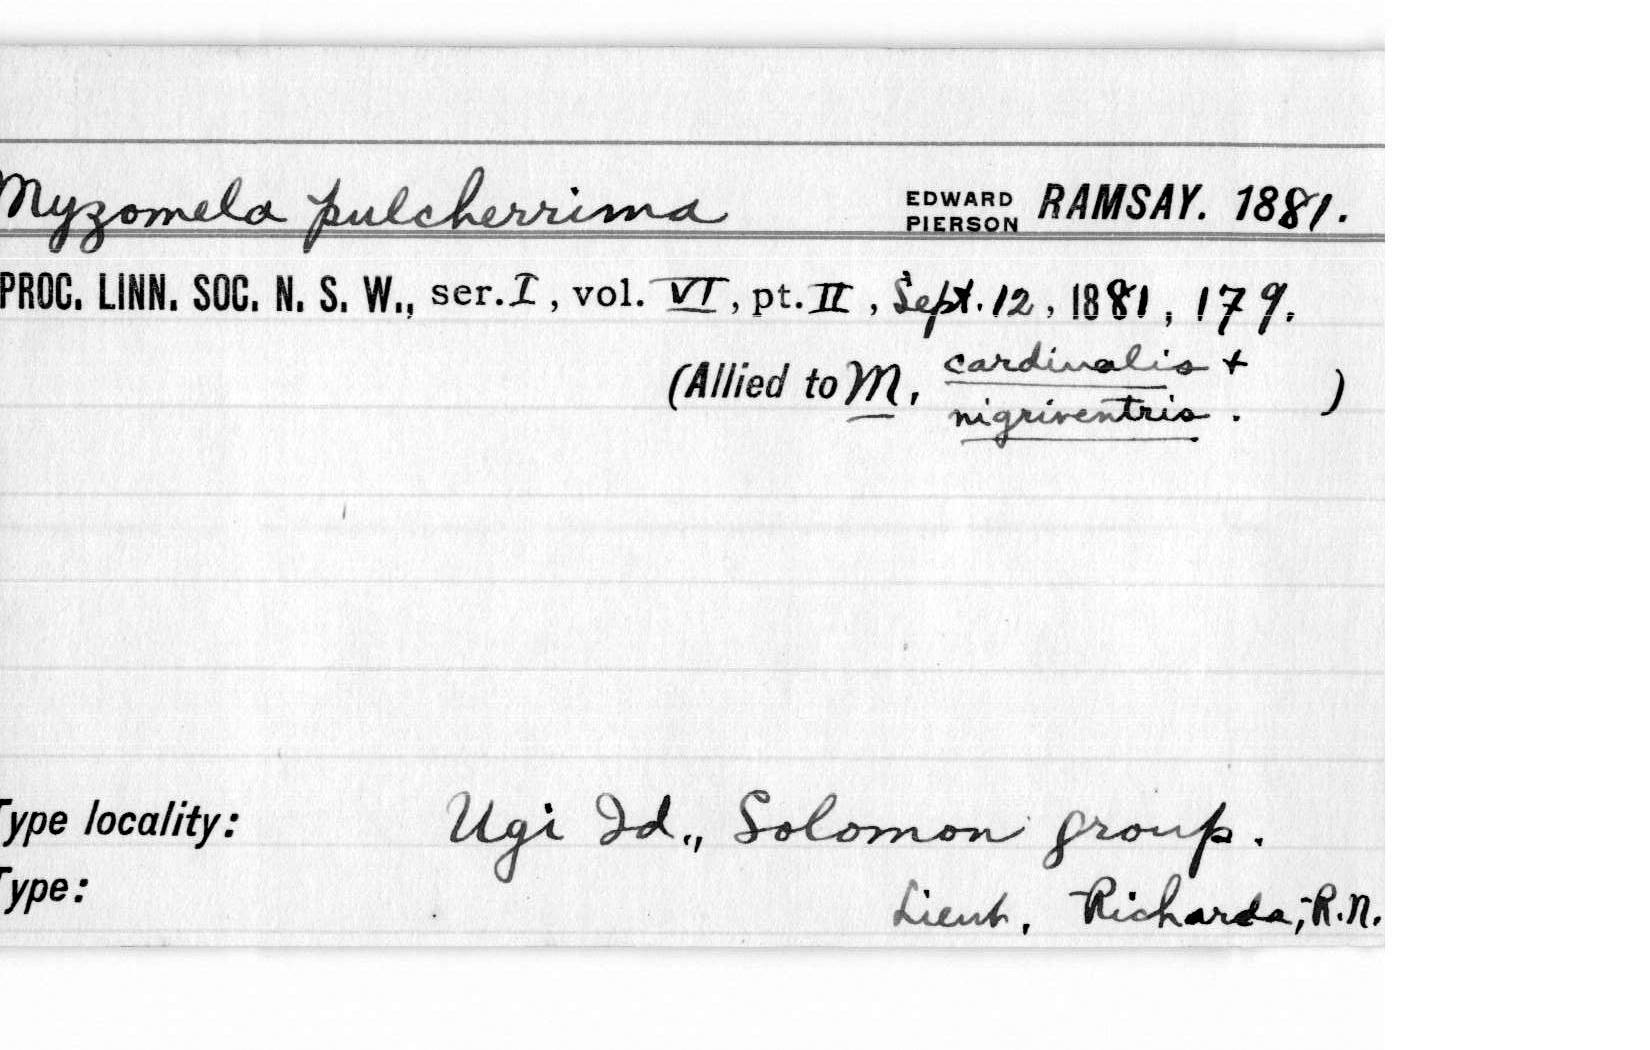 Myzomela pulcherrima EDWARD PIERSON RAMSAY. 1881.
PROC. LINN. SOC. N. S. W., ser. I, vol. VI, pt. II, Sept. 12, 1881, 179.
(Allied to M. cardinalis +
nigriventris. )
Type locality: Ugi Id., Solomon group.
Type: Lieut. Richards, R.N.